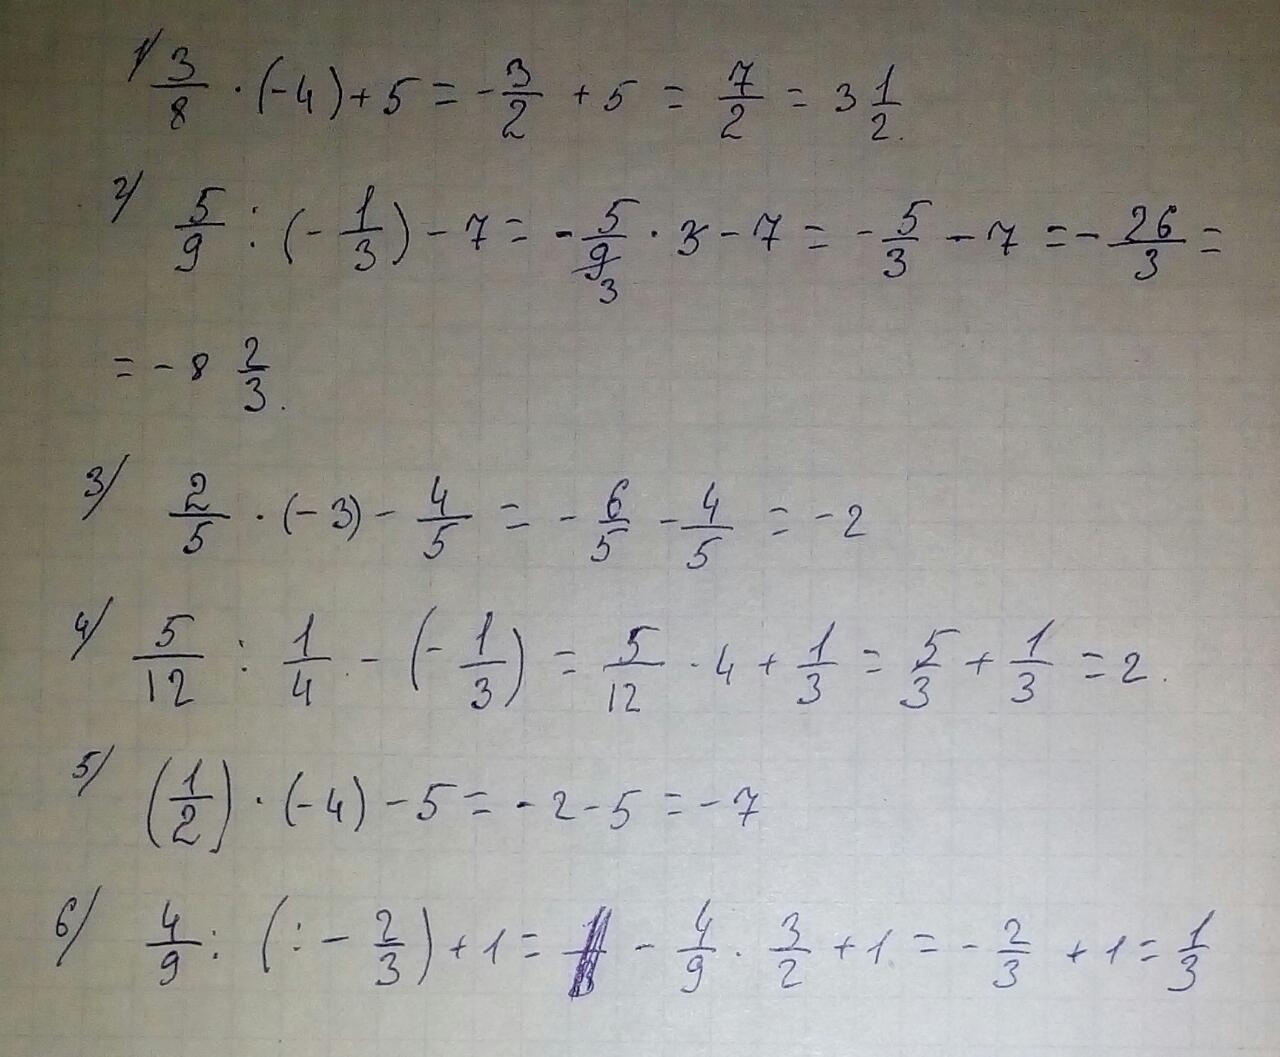 1) 3/8 · (-4) + 5 = -3/2 + 5 = 7/2 = 3 1/2.
2) 5/9 : (-1/3) - 7 = -5/9 3 · 3 - 7 = -5/3 - 7 = -26/3 =
= -8 2/3.
3) 2/5 · (-3) - 4/5 = -6/5 - 4/5 = -2
4) 5/12 : 1/4 - (-1/3) = 5/12 · 4 + 1/3 = 5/3 + 1/3 = 2.
5) (1/2) · (-4) - 5 = -2 - 5 = -7
6) 4/9 : (: - 2/3) + 1 = - 4/9 · 3/2 + 1 = -2/3 + 1 = 1/3